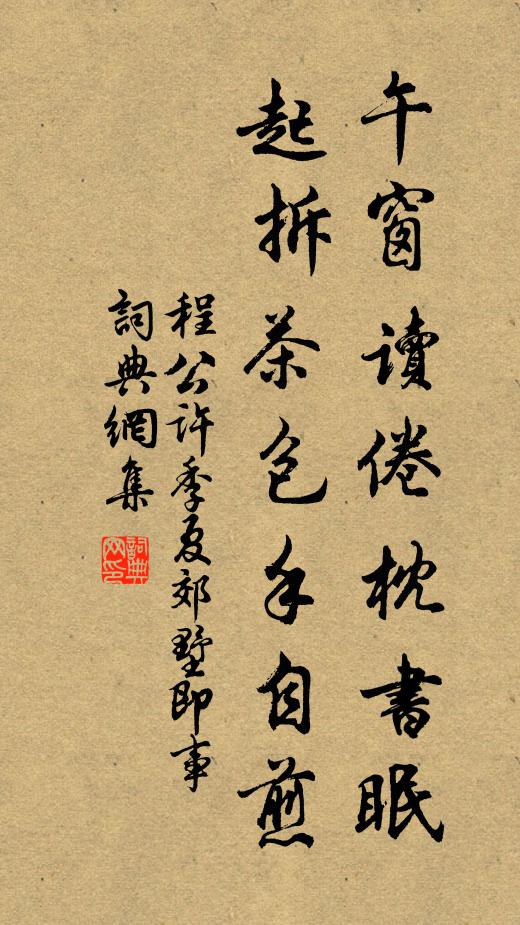 午窗讀倦枕書眠
起拆茶包手自煎
程公許季夏郊墅即事
詞典網集
詞典网印